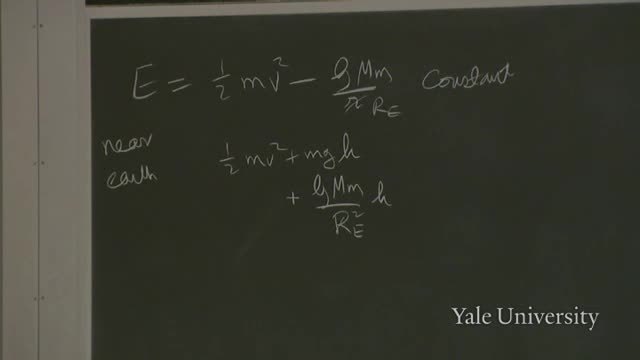 E = 1/2 mv² − GMm/R_E constant
near 1/2 mv² + mgh
earth + GMm/R_E² h
Yale University